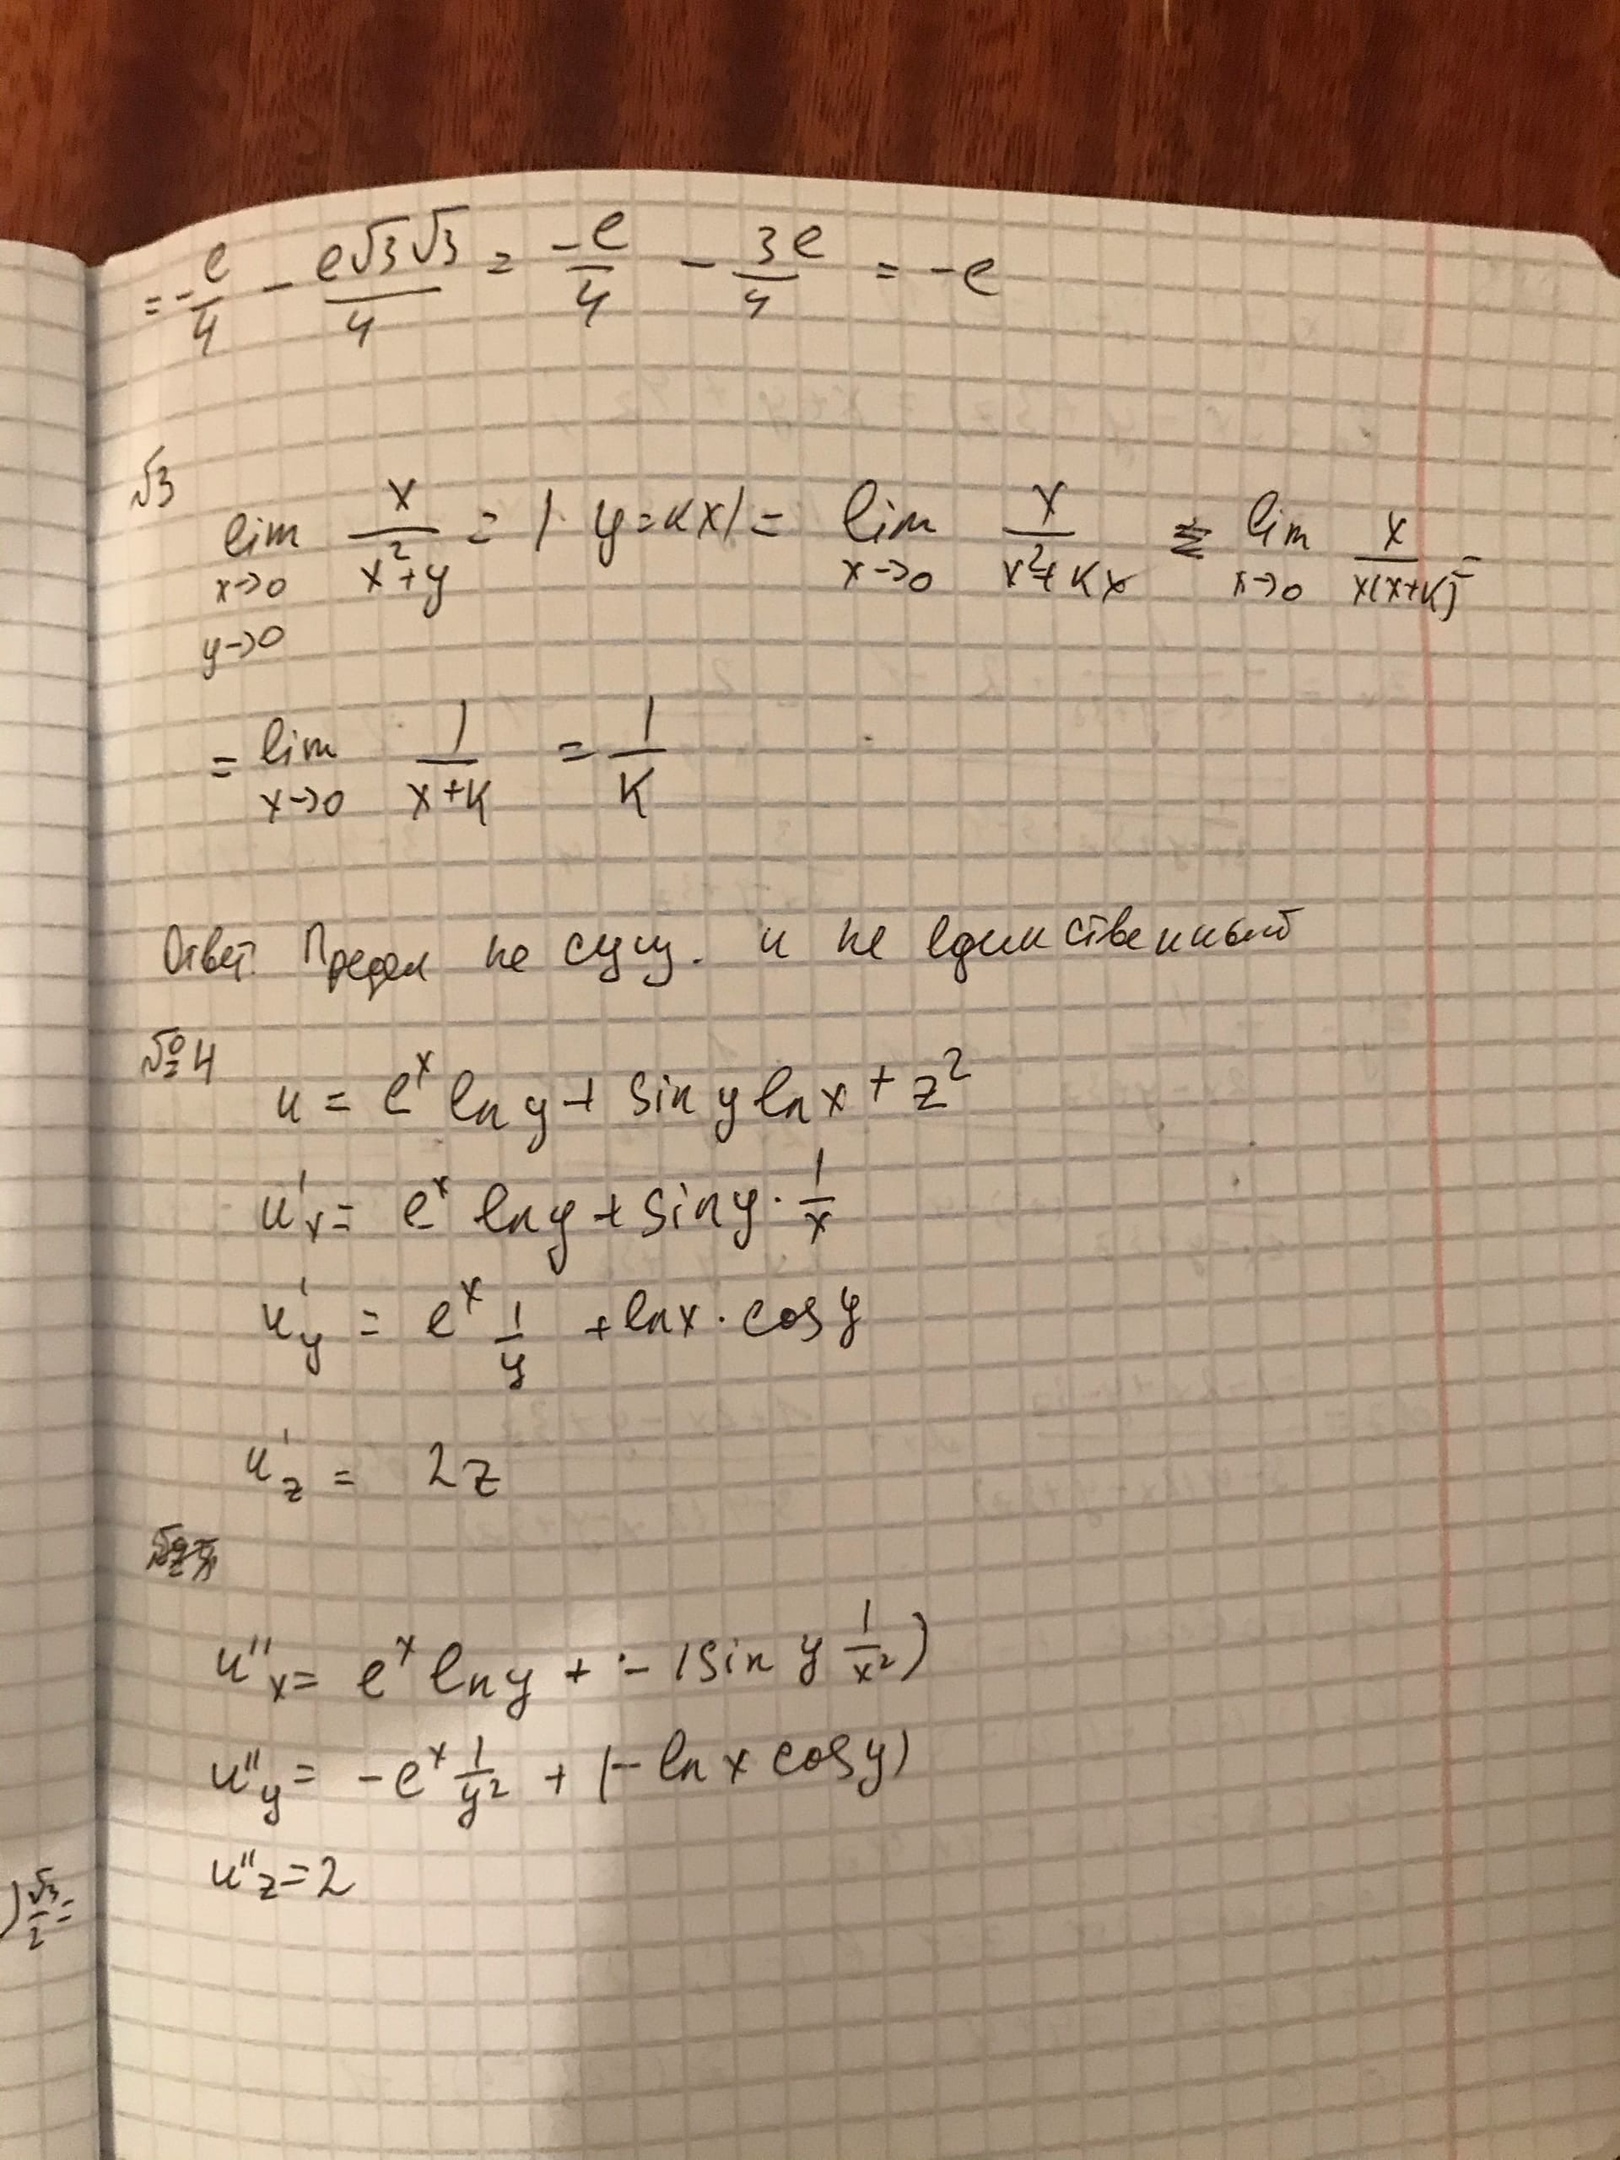 = -e/4 - e√3√3/4 = -e/4 - 3e/4 = -e
№3
lim x→0 y→0 x/(x²+y) = | y=kx | = lim x→0 x/(x²+kx) = lim x→0 x/(x(x+k)) =
= lim x→0 1/(x+k) = 1/k
Ответ. Предел не сущ. и не единственный
№4
u = eˣ ln y + sin y ln x + z²
u'x = eˣ ln y + sin y · 1/x
u'y = eˣ 1/y + ln x · cos y
u'z = 2z
u''x = eˣ ln y + - (sin y 1/x²)
u''y = -eˣ 1/y² + (- ln x cos y)
u''z = 2
) √3/2 =